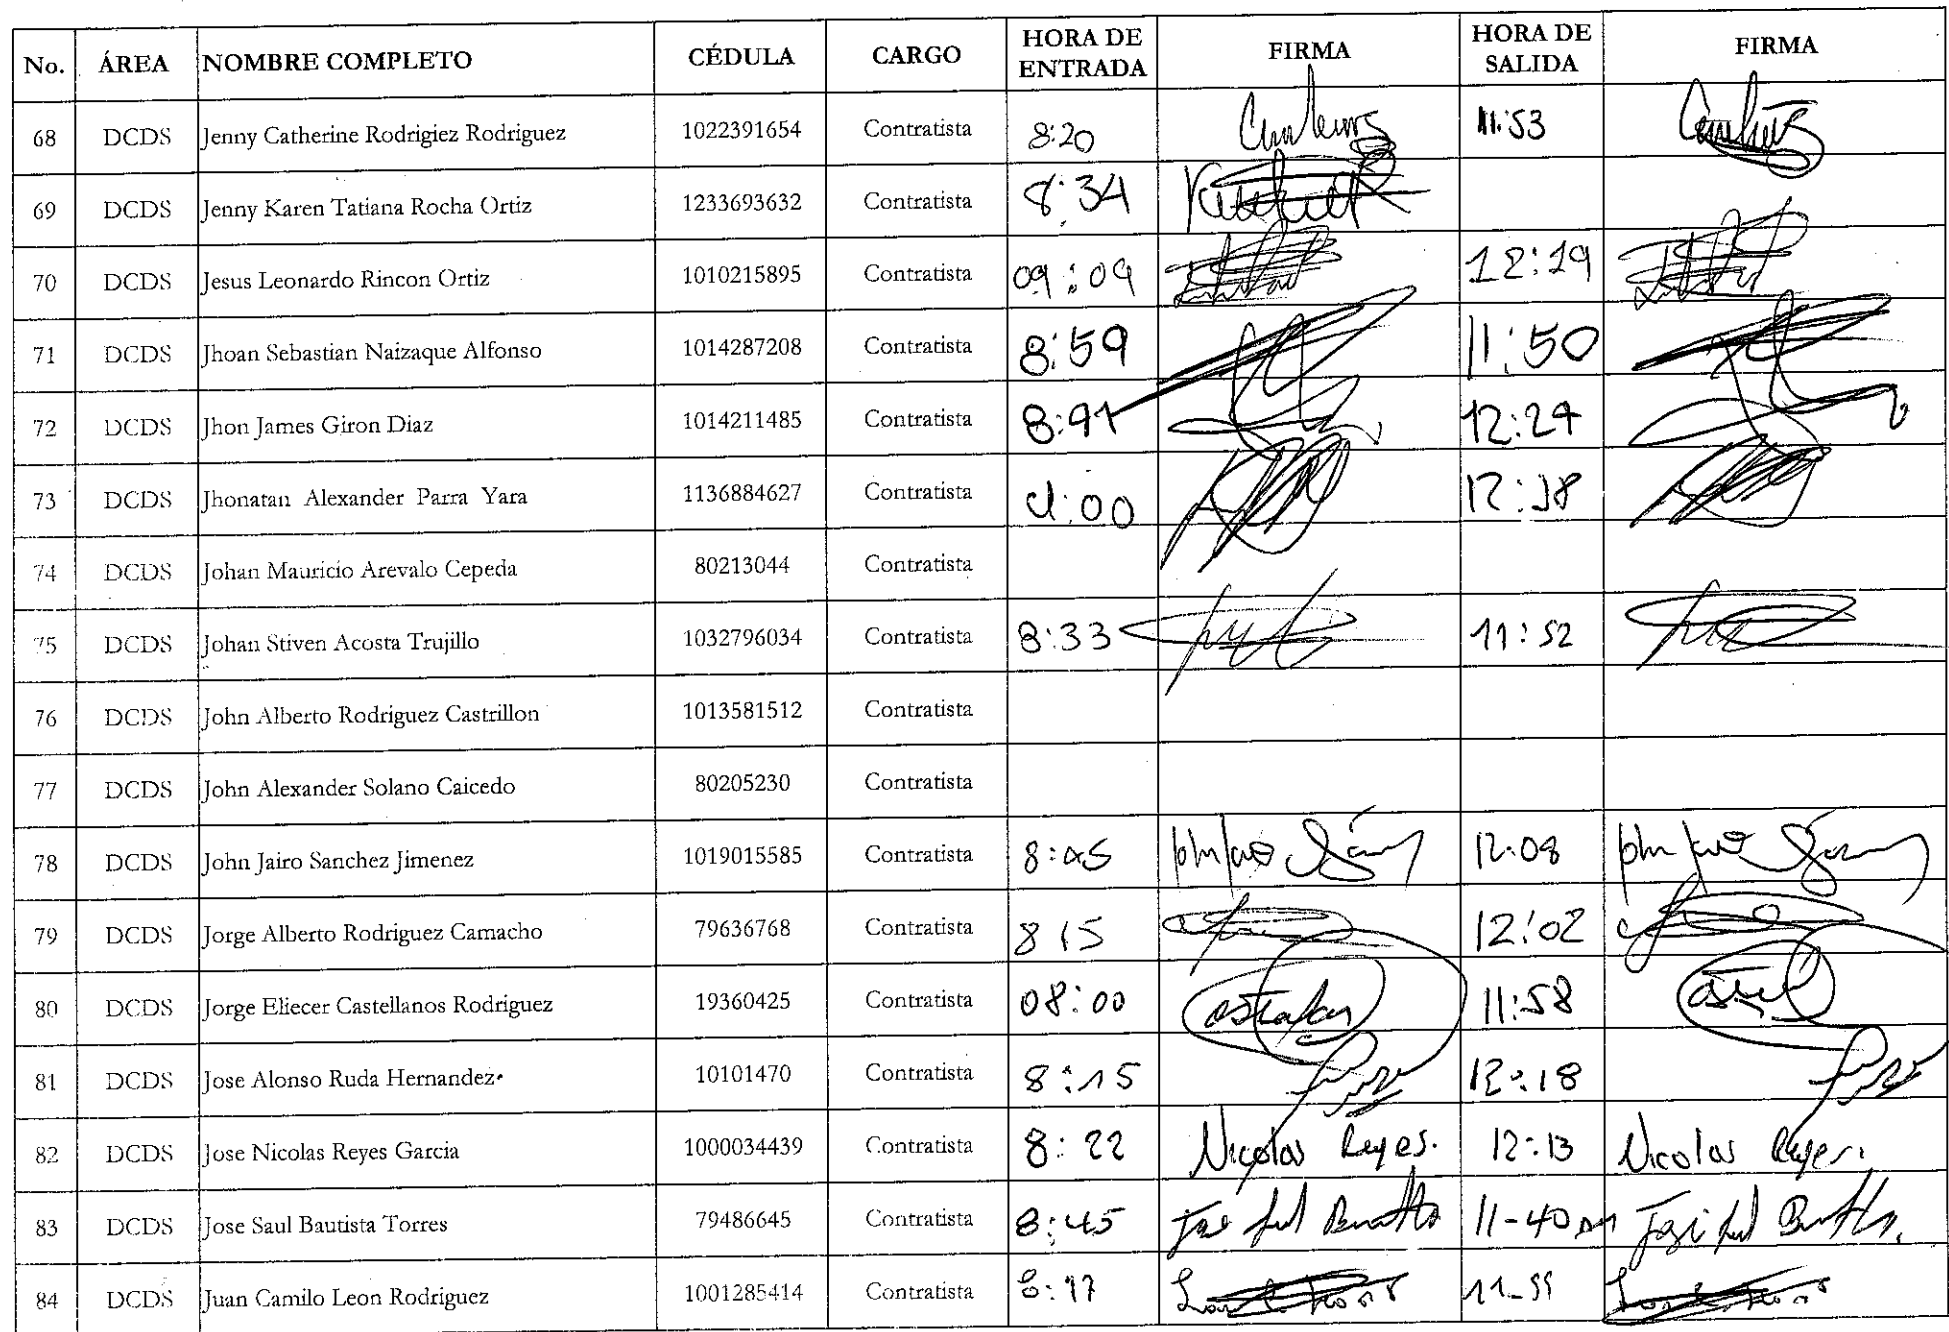 No. ÁREA NOMBRE COMPLETO CÉDULA CARGO HORA DE ENTRADA FIRMA HORA DE SALIDA FIRMA
68 DCDS Jenny Catherine Rodrigiez Rodriguez 1022391654 Contratista 8:20 11:53
69 DCDS Jenny Karen Tatiana Rocha Ortiz 1233693632 Contratista 8:34
70 DCDS Jesus Leonardo Rincon Ortiz 1010215895 Contratista 09:09 12:19
71 DCDS Jhoan Sebastian Naizaque Alfonso 1014287208 Contratista 8:59 11:50
72 DCDS Jhon James Giron Diaz 1014211485 Contratista 12:24
73 DCDS Jhonatan Alexander Parra Yara 1136884627 Contratista 12:38
74 DCDS Johan Mauricio Arevalo Cepeda 80213044 Contratista
75 DCDS Johan Stiven Acosta Trujillo 1032796034 Contratista 8:33 11:52
76 DCDS John Alberto Rodriguez Castrillon 1013581512 Contratista
77 DCDS John Alexander Solano Caicedo 80205230 Contratista
78 DCDS John Jairo Sanchez Jimenez 1019015585 Contratista 8:45 12:08
79 DCDS Jorge Alberto Rodriguez Camacho 79636768 Contratista 8 15 12:02
80 DCDS Jorge Eliecer Castellanos Rodriguez 19360425 Contratista 08:00 11:58
81 DCDS Jose Alonso Ruda Hernandez 10101470 Contratista 8:15 12:18
82 DCDS Jose Nicolas Reyes Garcia 1000034439 Contratista 8:22 Nicolas Reyes. 12:13 Nicolas Reyes.
83 DCDS Jose Saul Bautista Torres 79486645 Contratista 8:45 11-40 am
84 DCDS Juan Camilo Leon Rodriguez 1001285414 Contratista